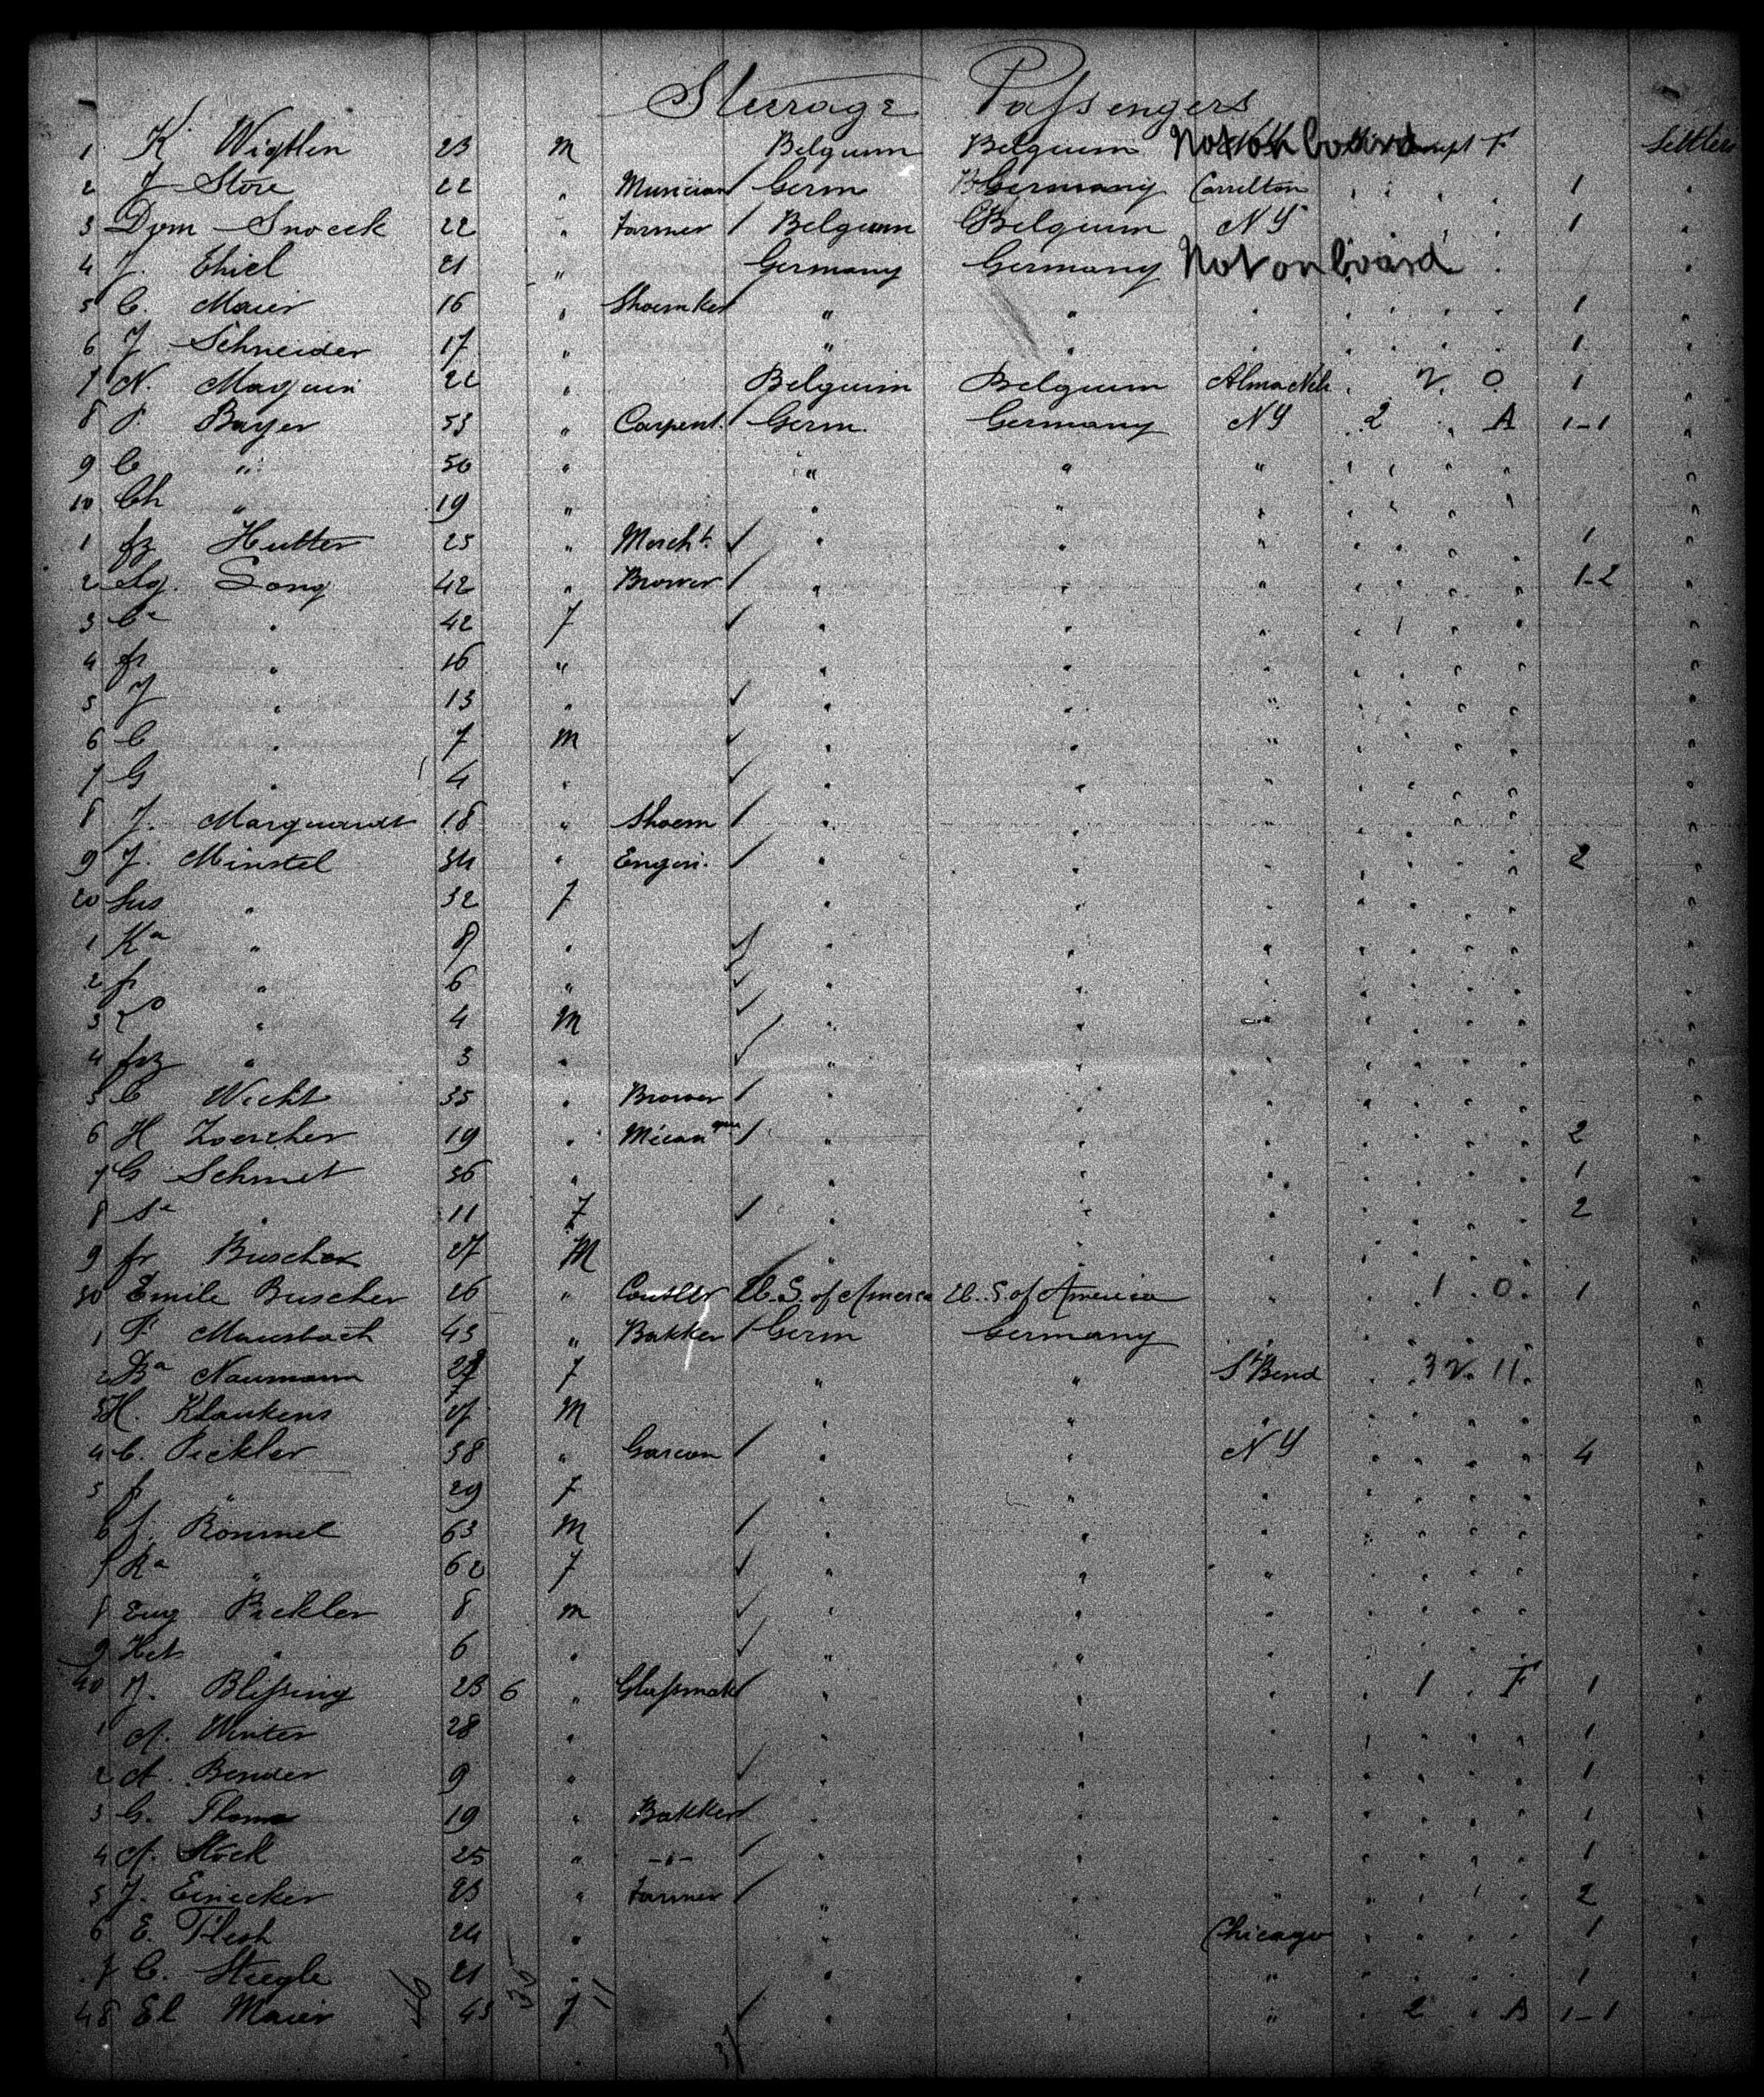 Steerage Passengers
1 K Wigtlen 23 M Belguim Belguim Not on board F Settler
2 J Store 22 " Musician / Germ Germany Carrelton " " " " 1 "
3 Dym Snoeck 22 " Farmer / Belguim Belguim NY " " 1 "
4 J. Thiel 21 " Germany Germany Not on board "
5 C. Maier 16 " Shoemker " " " " " " " 1 "
6 J Schneider 17 " " " " " " " " 1 "
7 N. Maquin 22 " Belguim Belguim Alma Neb " 2 O 1 "
8 P. Bayer 53 " Carpent. / Germ. Germany NY 2 " A 1-1 "
9 C " 50 " " " " " " " " "
10 Ch " 19 " " " " " " " " "
1 fz Hutter 25 " Mercht. / " " " " " " " 1 "
2 Lg. Long 42 " Brower / " " " " " " " 1-2 "
3 Ce " 42 f / " " " " " " " "
4 fr " 16 " " " " " " " " "
5 J " 13 " / " " " " " " " "
6 C " 7 M / " " " " " " " "
7 G " 4 " / " " " " " " " "
8 J. Marquardt 18 " Shoem / " " " " " " " "
9 J. Minstel 34 " Engin. / " " " " " " " 2 "
20 Sus " 32 f " " " " " " " "
1 Ka " 8 " / " " " " " " " "
2 fr " 6 " / " " " " " " " "
3 " 4 M / " " " " " " " "
4 frz " 3 " / " " " " " " " "
5 C Wicht 35 " Brower / " " " " " " " "
6 H Zoercher 19 " Mécan / " " " " " " " 2 "
7 G Schmet 36 " " " " " " " " 1 "
8 Se " 11 f / " " " " " " " 2 "
9 fr Buscher 27 M " " " " " " " "
30 Emile Buscher 26 " U.S. of America U.S. of America " 1 O. 1 "
1 P. Mausbach 43 " Bakker / Germ Germany "
2 Ba Naumann f " " St Bend " 3 2. 11. "
3 H. Klaukens 27 M " " " " " " " "
4 C. Pickler 38 " Garcon / " " NY " " " " 4 "
5 f " 29 f " " " " " " " "
6 J. Rommel 63 M / " " " " " " " "
7 Ka " 62 f / " " " " " " " "
8 Eug Pickler 8 M / " " " " " " " "
9 Het " 6 " / " " " " " " " "
40 J. Blessing 23 6 " Glassmak / " " " 1 " F 1 "
1 A. Winter 28 " " " " " " " " 1 "
2 A. Bender 9 " / " " " " " " " 1 "
3 G. Thoma 19 " Bakker / " " " " " " " 1 "
4 A. Stock 25 " -"- / " " " " " " " 1 "
5 J. Einecker 23 " Farmer / " " " " " " " 2 "
6 E. Flesh 24 " " " Chicago " " " " 1 "
7 C. Steegle 21 " " " " " " " " 1 "
48 El Maier 43 f / " " " " 2 " A 1-1 "